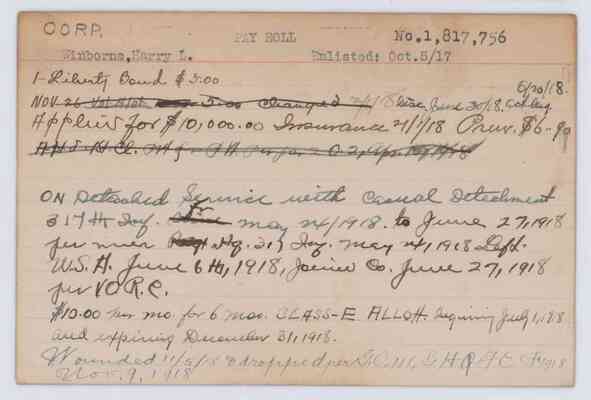 CORP.
PAY ROLL No.1,817,756
Winborne, Harry L. Enlisted: Oct.5/17
1-Liberty Bond $5.00
6/20/18.
NOV 26 5.00 Changed 2/1/18 June 30/18.
Applied for $10,000.00 Insurance 2/1/18 Prem. $6-90
ON Detached Service with Casual Detachment
317th Inf. fr May 24/1918. to June 27, 1918
per Hq. 317 Inf. May 24, 1918 Left.
U.S.A. June 6th, 1918, Joined Co. June 27, 1918
per VORC.
$10.00 per mo. for 6 mos. CLASS-E ALLOT. Beginning July 1, 1918
and expiring December 31, 1918.
Wounded 11/9/18 & dropped per G.O. 111, G.H.Q. A.E.F. 1918
Nov. 9, 1918